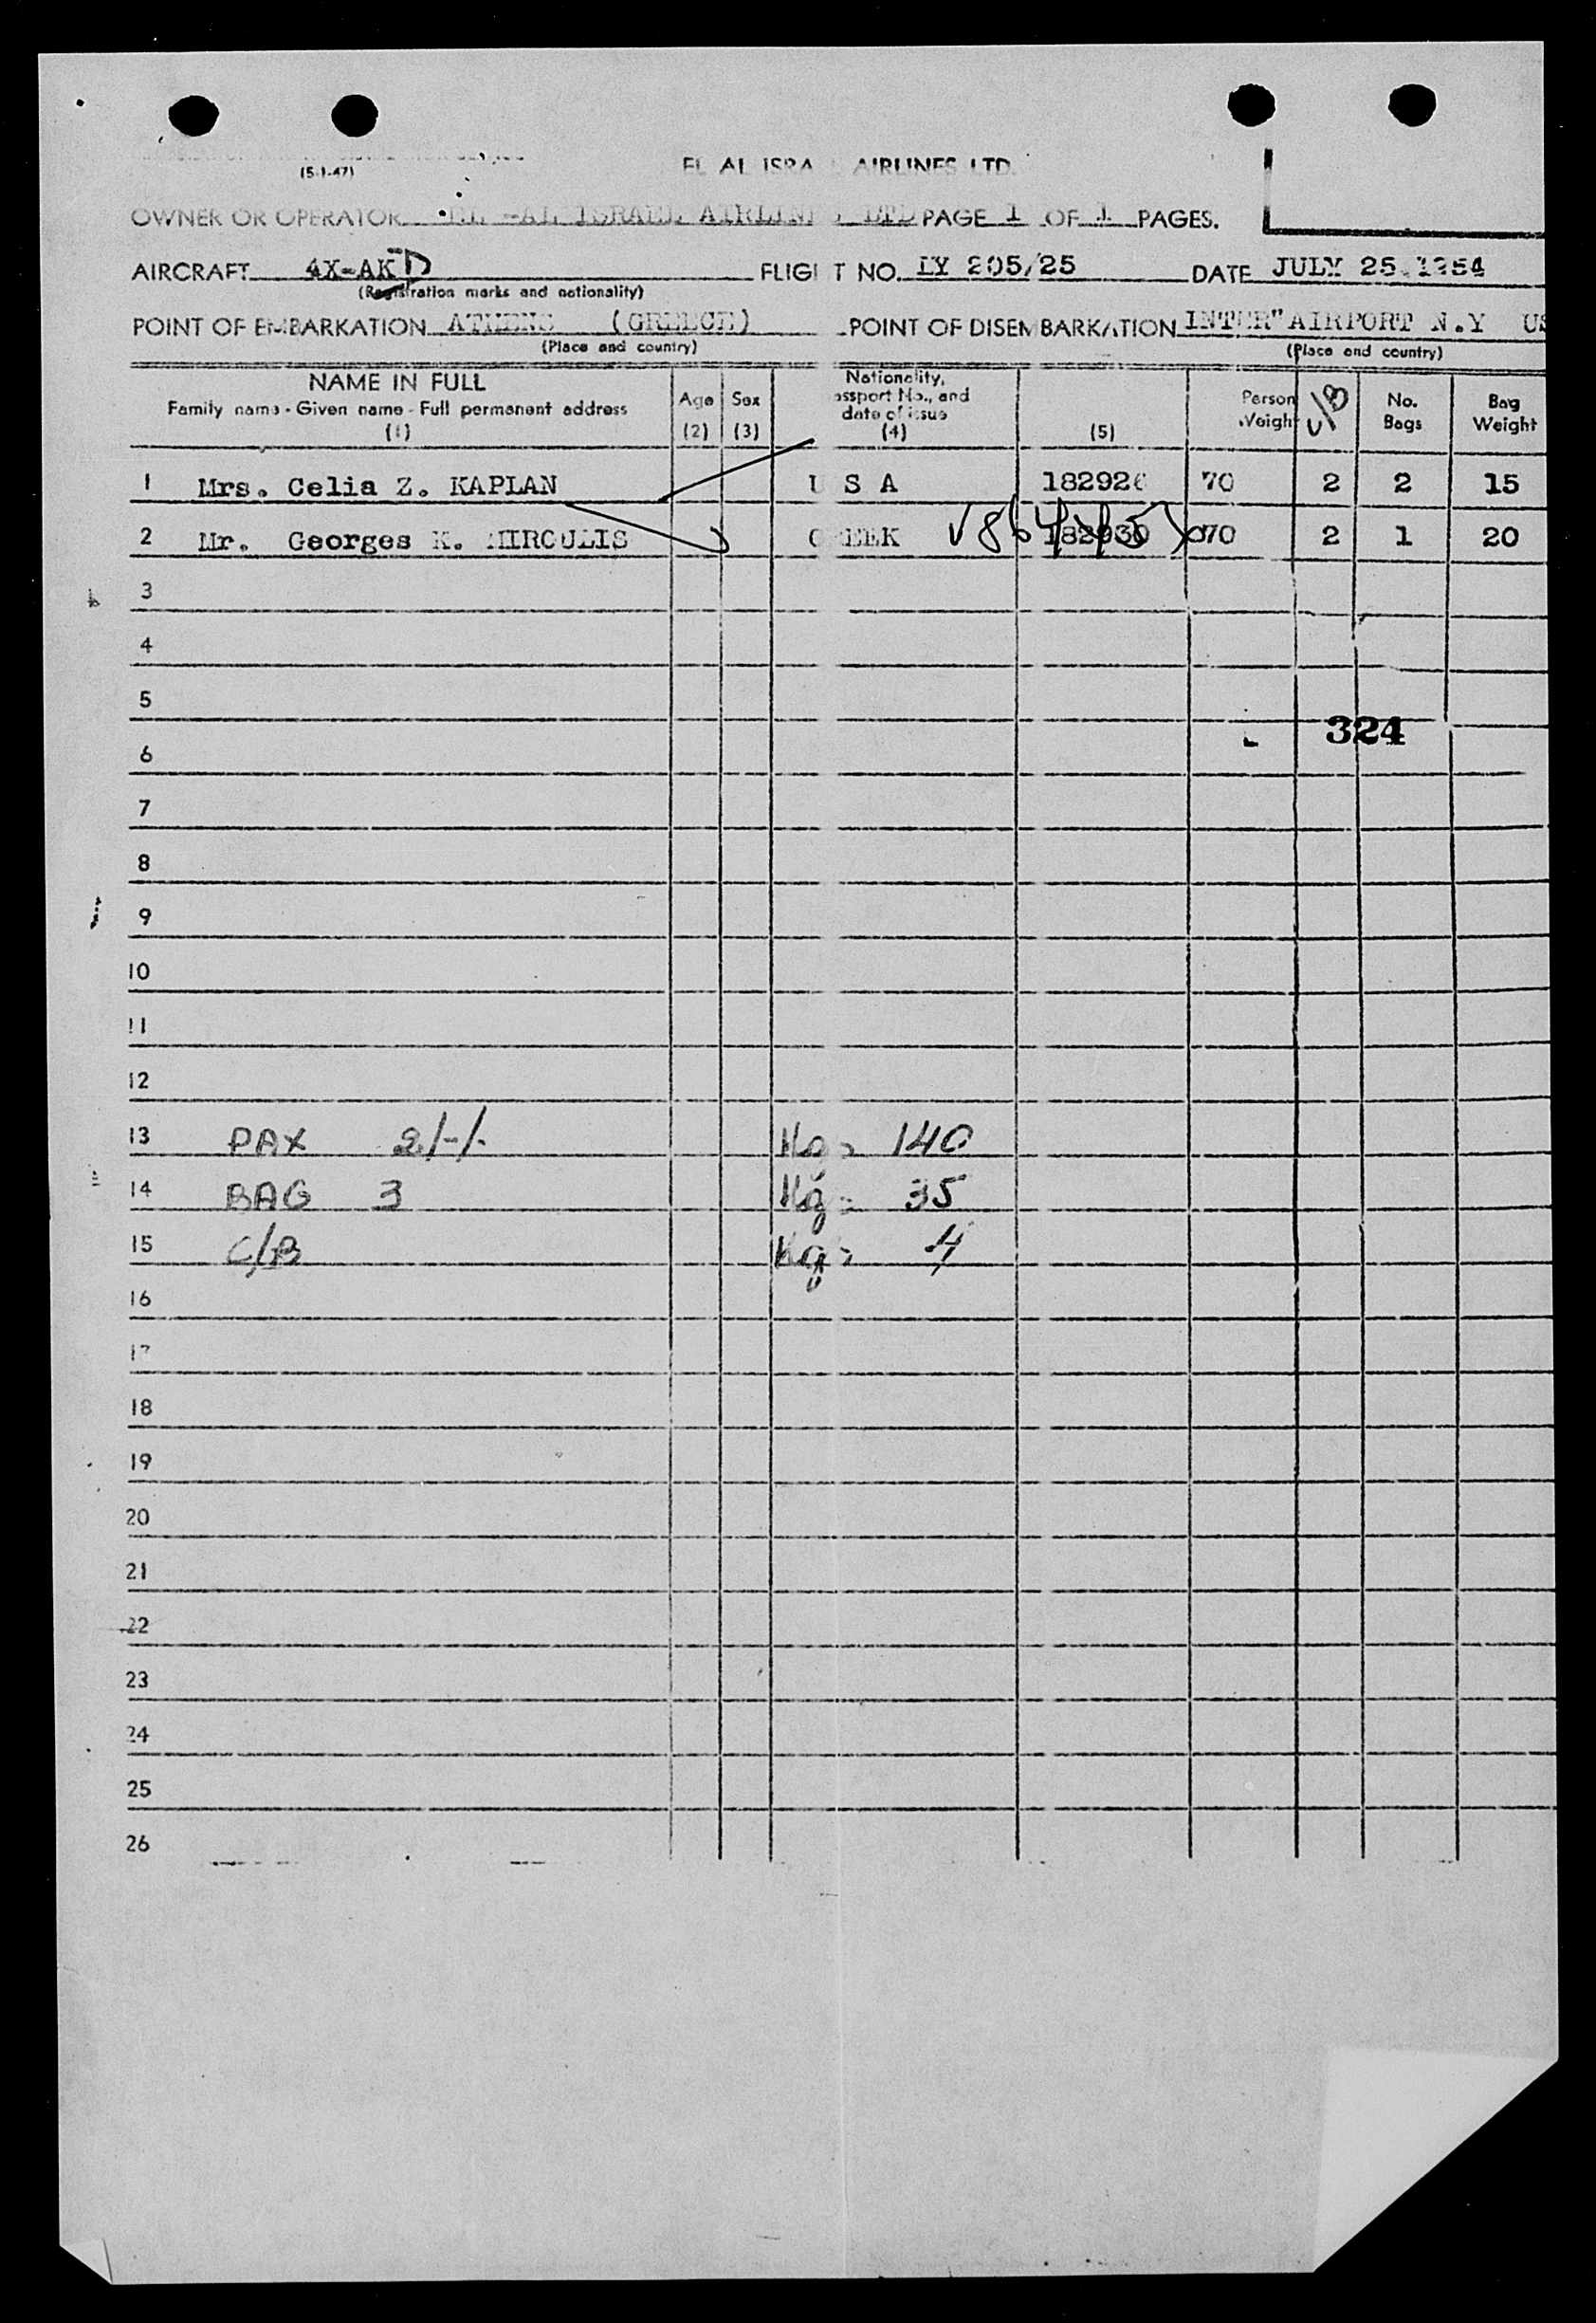 (5-1-47)
EL AL ISRA AIRLINES LTD.
OWNER OR OPERATOR EL -AL ISRAEL AIRLIN LTD PAGE 1 OF 1 PAGES.
AIRCRAFT 4X-AKD FLIGHT NO. LY 205/25 DATE JULY 25.1954
(Registration marks and nationality)
POINT OF EMBARKATION ATHENS (GREECE) POINT OF DISEMBARKATION INTER" AIRPORT N.Y US
(Place and country) (Place and country)
NAME IN FULL
Family name - Given name - Full permanent address
(1)
Age
(2)
Sex
(3)
Nationality,
assport No., and
date of issue
(4)
(5)
Person
Weight
C/B
No.
Bags
Bag
Weight
1 Mrs. Celia Z. KAPLAN U S A 182926 70 2 2 15
2 Mr. Georges K. MIROULIS GREEK 182930 70 2 1 20
3
4
5
324
6
7
8
9
10
11
12
13 PAX 2/-/- Kg = 140
14 BAG 3 Kg = 35
15 C/B Kg = 4
16
17
18
19
20
21
22
23
24
25
26